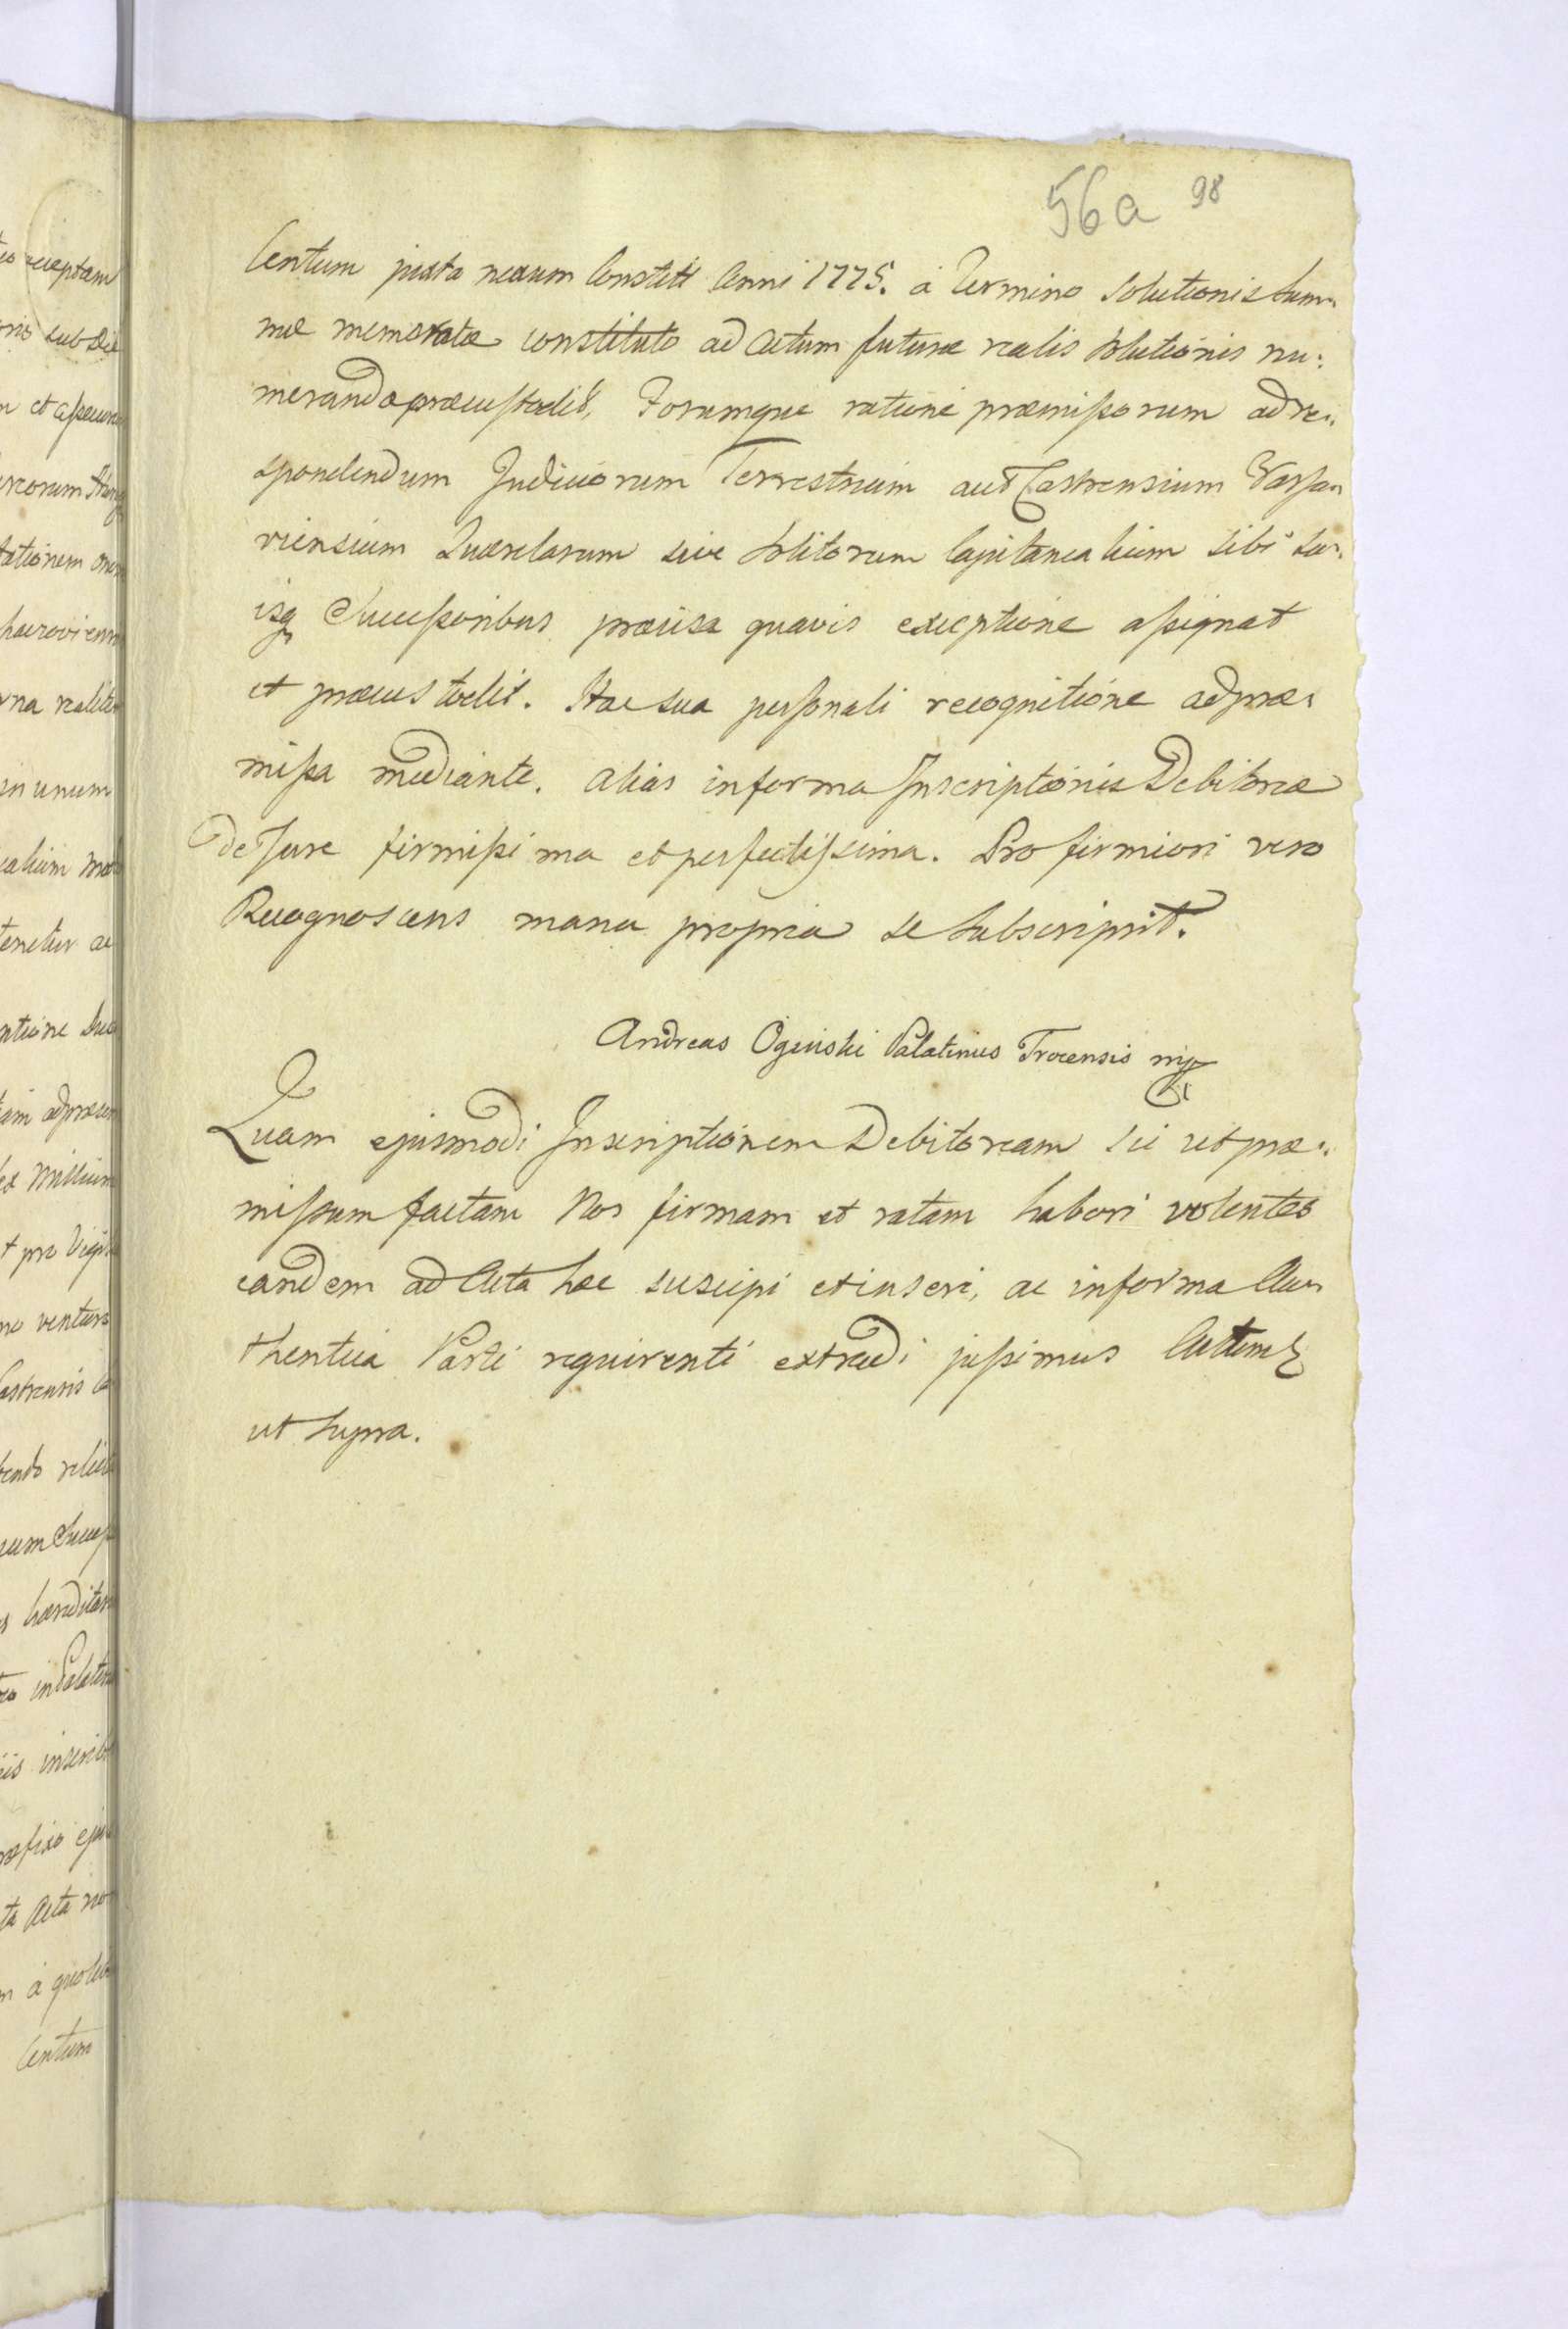 56a 98
Centum juxta nexum Constitt Anni 1775. à Termino Solutionis Sum-
mæ memoratæ constituto ad Actum futuræ realis Solutionis nu:
meranda præcustodit, Forumque ratione præmißorum ad re:
spondendum Judiciorum Terrestrium aut Castrensium Varsa-
viensium Querelarum sive Solitorum Capitanealium sibi su-
isq Successoribus præcisa quavis exceptione aßignat
et præcustodit. Hac sua personali recognitione ad præ-
mißa mediante. alias in forma Inscriptionis Debitoreæ
de Jure firmißima et perfectißima. Pro firmiori vero
Recognoscens manu propria se Subscripsit.
Andreas Oginski Palatinus Trocensis mp
Quam ejusmodi Inscriptionem Debitoream sic ut præ:
mißum factam Nos firmam et ratam haberi volentes
eandem ad Acta hæc suscipi et inseri, ac in forma Au-
thentica Parti requirenti extradi jußimus Actum
ut Supra.
eceptam
sub die
et aßecura
tationem one
realiter
in unum
alium mo
tenetur ac
ntione
ad præsen
Millium
et pro
ventura
Castrensis
hæredita
in Palatin
inscrib
Acta
à quolib
Centum